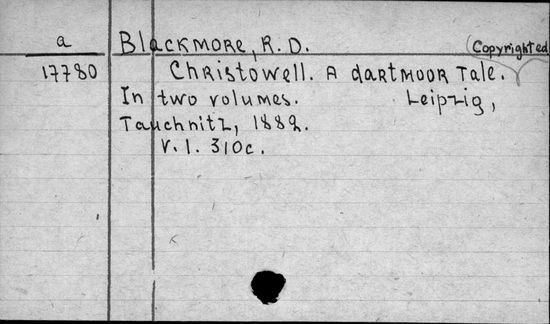 a Blackmore, R. D. (Copyrighted
17780 Christowell. A dartmoor Tale.
In two volumes. Leipzig,
Tauchnitz, 1882.
v. 1. 310c.